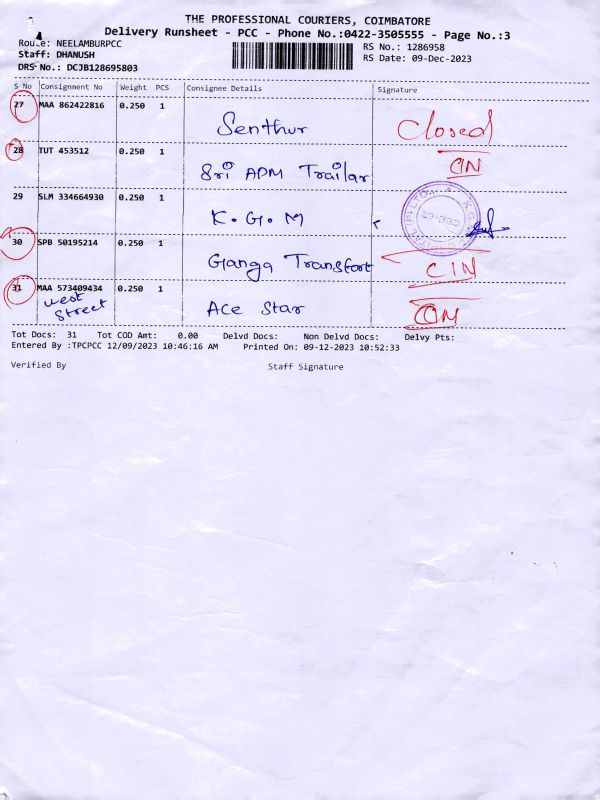 THE PROFESSIONAL COURIERS, COIMBATORE
Delivery Runsheet - PCC - Phone No.:0422-3505555 - Page No.:3
Route: NEELAMBURPCC
RS No.: 1286958
Staff: DHANUSH
RS Date: 09-Dec-2023
DRS No.: DCJB128695803
S No Consignment No Weight PCS Consignee Details Signature
27 MAA 862422816 0.250 1
Senthur Closed
28 TUT 453512 0.250 1
Sri ADM Trailar CIN
29 SLM 334664930 0.250 1
K.G.M
30 SPB 50195214 0.250 1
Ganga Transfort CIN
31 MAA 573409434 0.250 1
West Street
Ace Star
Tot Docs: 31 Tot COD Amt: 0.00 Delvd Docs: Non Delvd Docs: Delvy Pts:
Entered By :TPCPCC 12/09/2023 10:46:16 AM Printed On: 09-12-2023 10:52:33
Verified By Staff Signature